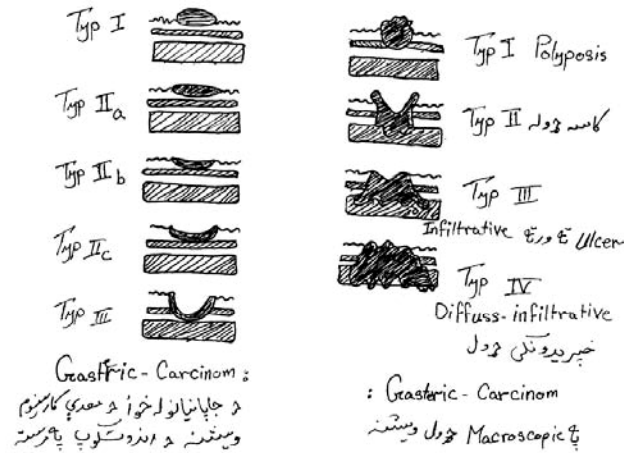 Typ I
Typ II a
Typ II b
Typ II c
Typ III
Gastric-Carcinom :
د جاپانیانو له خوا د معدې کارسنوم
ویشنه د اندوسکوپ په مرسته
Typ I Polyposis
Typ II کاسه ډوله
Typ III
Infiltrative
Ulcer
Typ IV
Diffuss-infiltrative
خپریدونکی ډول
: Gastric-Carcinom
په Macroscopic ډول ویشنه